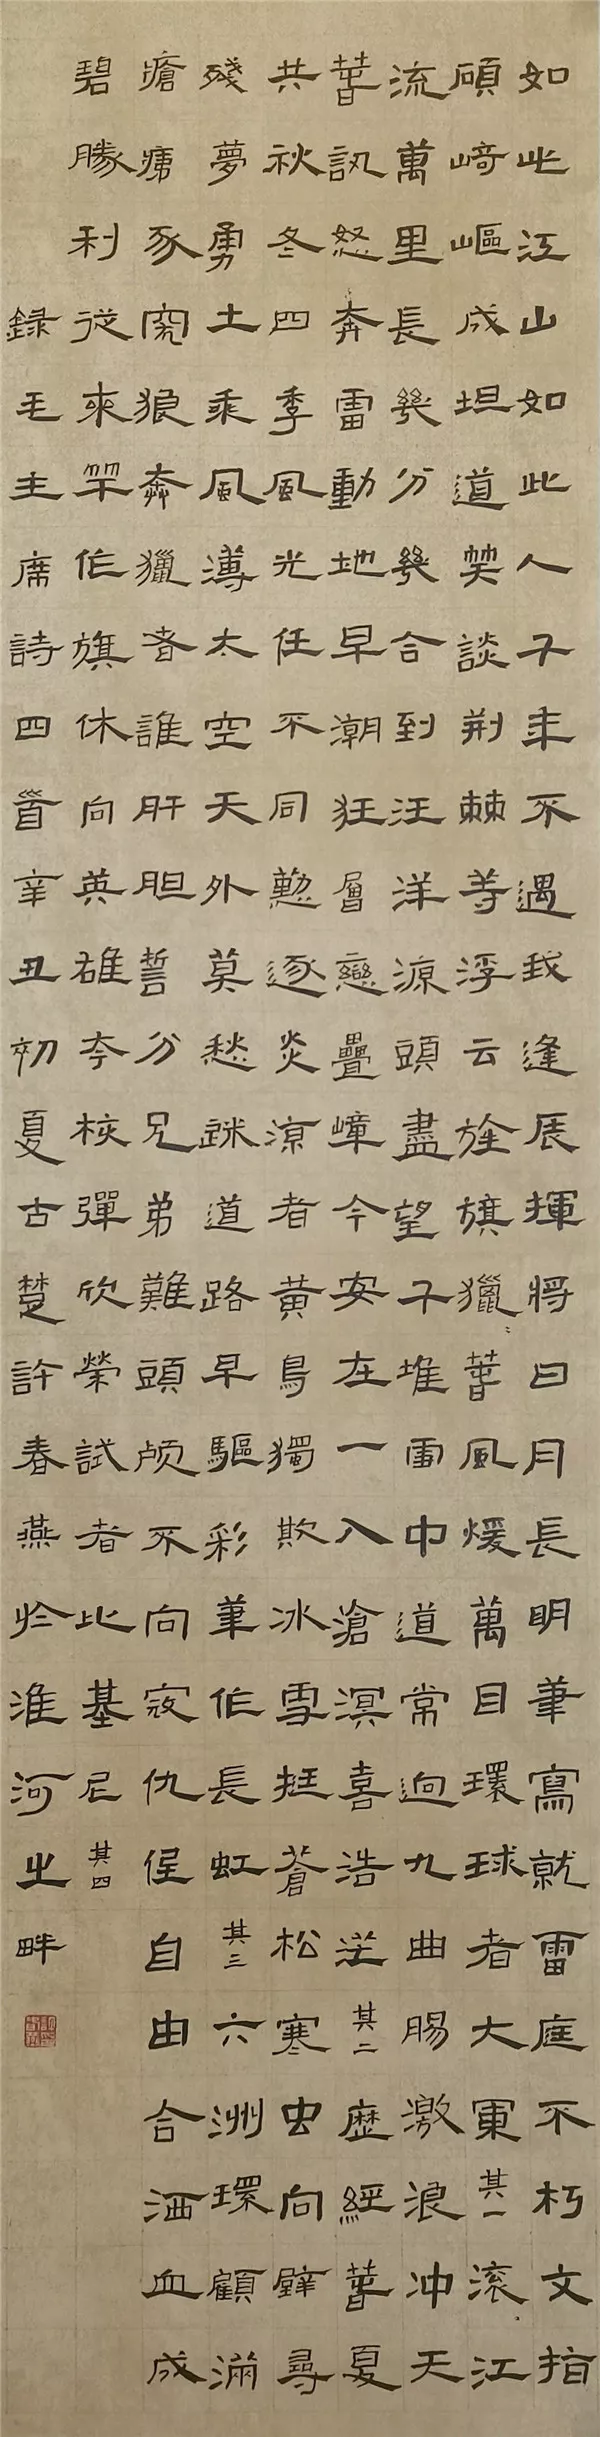 如此江山如此人千年不遇我逢辰揮將日月長明筆寫就雷庭不朽文指
頋崎嶇成坦道笑談荆棘等浮云旌旗獵〻春風煖萬目環球看大軍其一滚〻江
流萬里長幾分幾合到汪洋源頭盡望千堆雪中道常迴九曲腸激浪冲天
春訊怒奔雷動地早潮狂層巒疊嶂今安在一入滄溟喜浩茫其二歷經春夏
共秋冬四季風光任不同懶逐炎凉看黃鳥獨欺冰雪挺蒼松寒虫向壁尋
殘夢勇士乘風薄太空天外莫愁迷道路早驅彩筆作長虹其三六洲環顧滿
瘡痍豕突狼奔獵者誰肝胆誓分兄弟難頭顱不向寇仇低自由合洒血成
碧勝利從來竿作旗休向英雄夸核彈欣榮試看比基尼其四
錄毛主席詩四首辛丑初夏古楚許春燕於淮河之畔